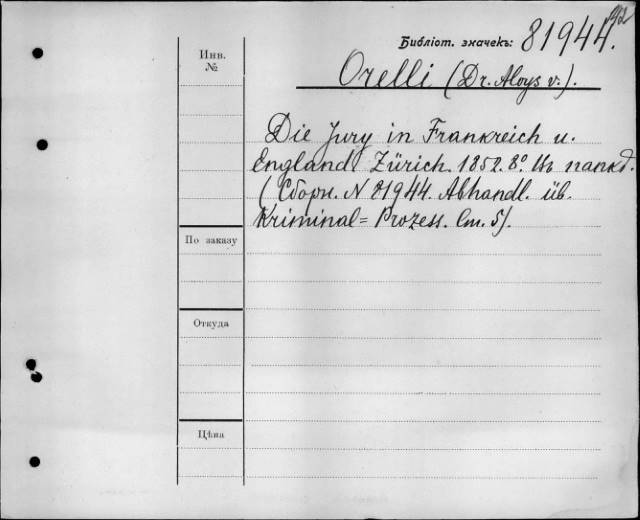 Библіот. значекъ: 81944.
Инв.
№
Orelli (Dr. Aloys v.).
Die Jury in Frankreich u.
England. Zürich. 1852. 8º. Въ папкѣ.
(Сборн. N 81944. Abhandl. üb.
Kriminal= Prozess. Ст. 5).
По заказу
Откуда
Цѣна